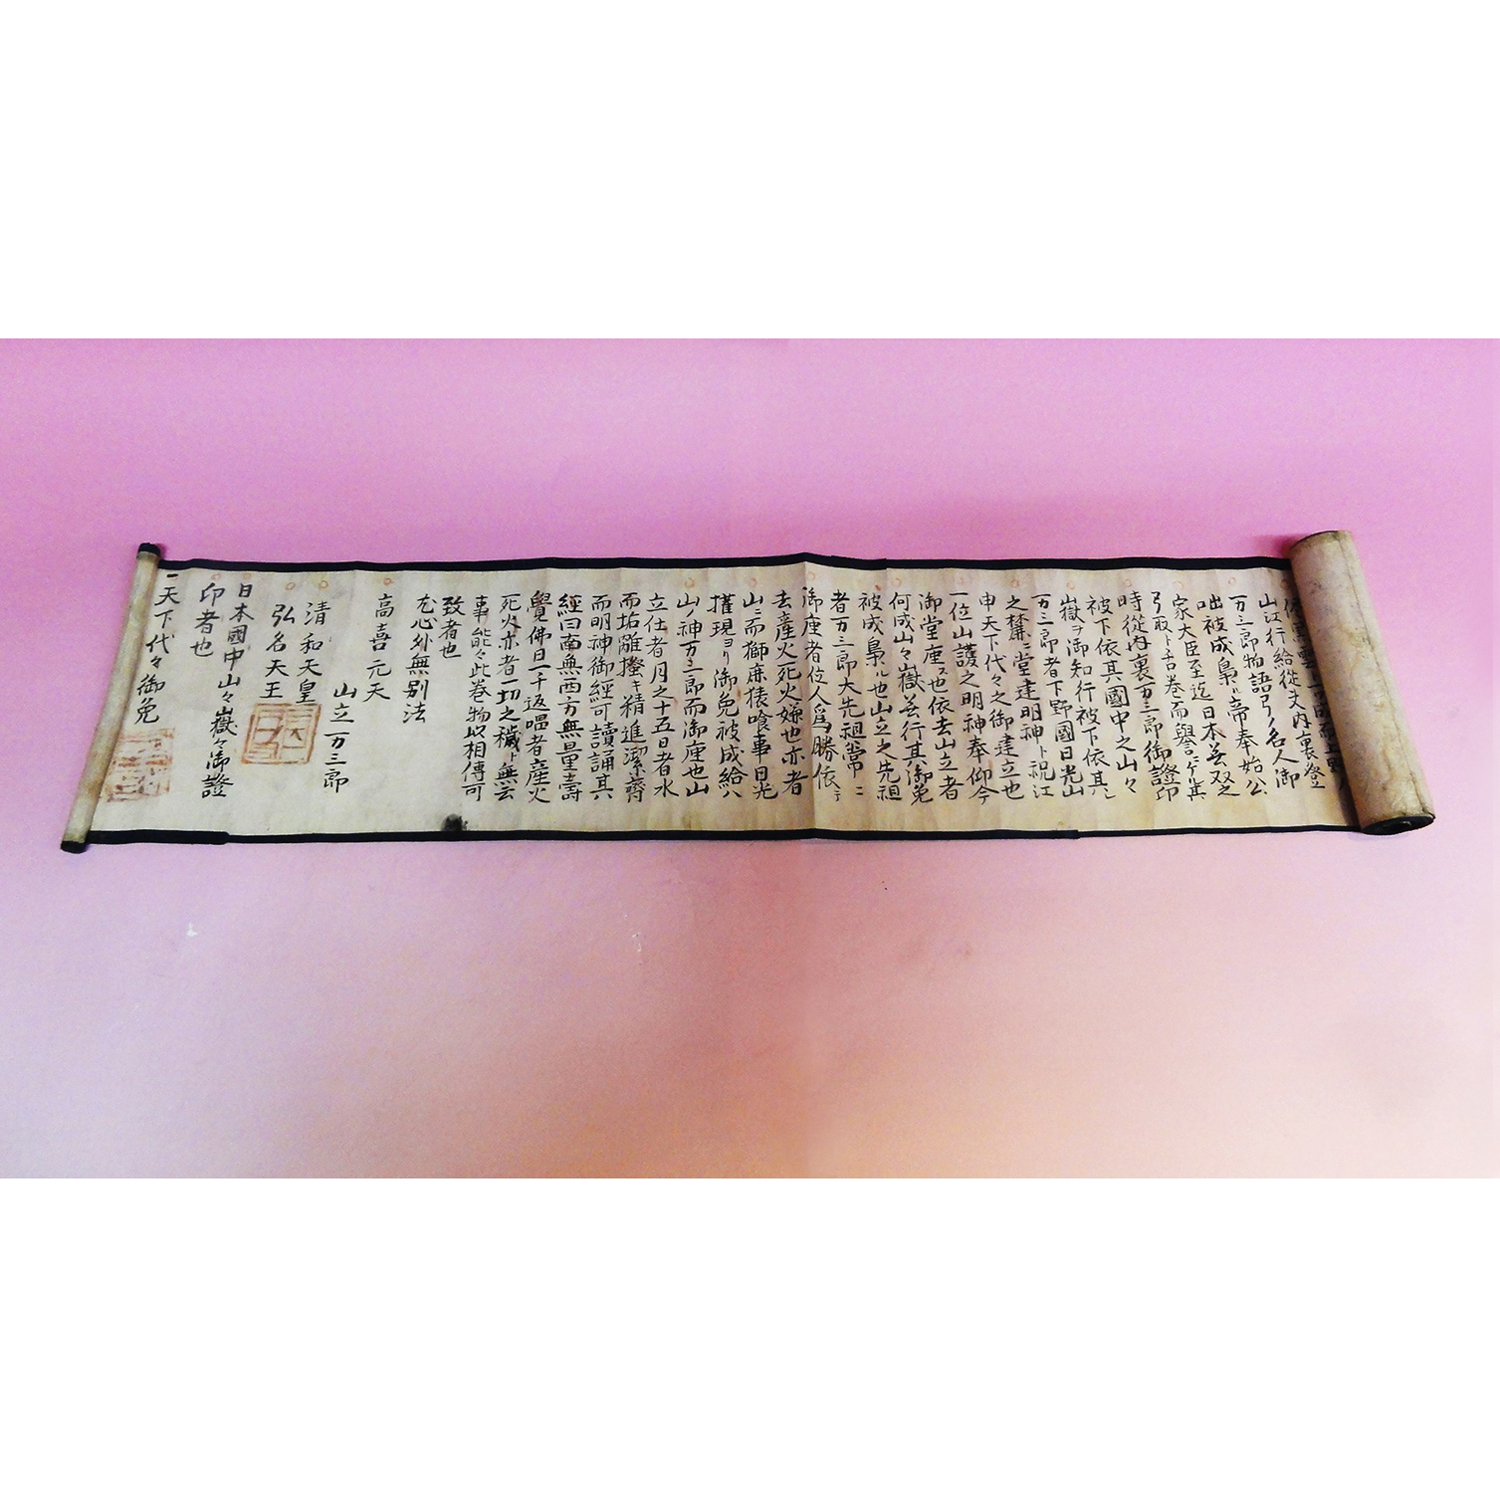 山江行給從夫内裏登ニ
万三郎物語弓ノ名人御
咄被成梟ル帝奉始公
家大臣至迄日本並双之
弓取ト舌巻而譽ニケ其
時從内裏万三郎御證印
被下依其國中之山々
嶽ヲ御知行被下依其
万三郎者下野國日光山
之麓ニ堂建明神ト祝江
申天下代々之御建立也
一位山護之明神奉仰今
御堂座ス也依去山立者
何成山々嶽並行其御免
被成梟ル也山立之先祖
者万三郎大先祖常ニ
御座者位人爲勝依テ
去産火死火嫌也亦者
山ニ而獅鹿猿喰事日光
權現ヨリ御免被成給ハ
山ノ神万三郎而御座也山
立仕者月之十五日者水
而垢離搔キ精進潔齊
而明神御經可讀誦其
經曰南無西方無量壽
覺佛日一千返唱者産火
死火亦者一切之穢ト無云
事能々此巻物以相傳可
致者也
尤心外無別法
高喜元天
山立万三郎
清和天皇
弘名天王
日本國中山々嶽々御證
印者也
一天下代々御免